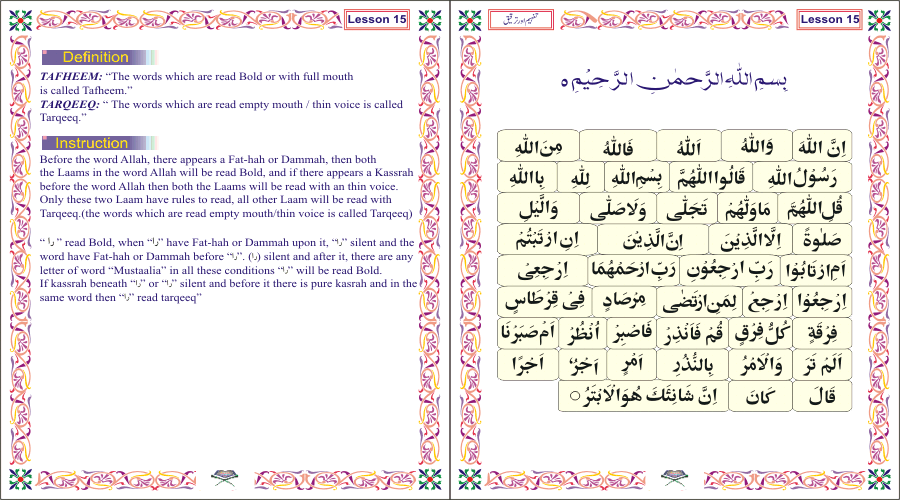 Lesson 15
Definition
TAFHEEM: “The words which are read Bold or with full mouth
is called Tafheem.”
TARQEEQ: “ The words which are read empty mouth / thin voice is called
Tarqeeq.”
Instruction
Before the word Allah, there appears a Fat-hah or Dammah, then both
the Laams in the word Allah will be read Bold, and if there appears a Kassrah
before the word Allah then both the Laams will be read with an thin voice.
Only these two Laam have rules to read, all other Laam will be read with
Tarqeeq.(the words which are read empty mouth/thin voice is called Tarqeeq)
“ را ” read Bold, when “را” have Fat-hah or Dammah upon it, “را” silent and the
word have Fat-hah or Dammah before “را”. (را) silent and after it, there are any
letter of word “Mustaalia” in all these conditions “را” will be read Bold.
If kassrah beneath “را” or “را” silent and before it there is pure kasrah and in the
same word then “را” read tarqeeq”
تفہیم اور ترقیق
Lesson 15
بِسْمِ اللهِ الرَّحْمٰنِ الرَّحِيْمِ ٥
اِنَّ اللهَ وَاللهُ اَللهُ فَاللهُ مِنَ اللهِ
رَسُوْلُ اللهِ قَالُوا اللّٰهُمَّ بِسْمِ اللهِ لِلّٰهِ بِاللهِ
قُلِ اللّٰهُمَّ مَاوَلّٰهُمْ تَجَلّٰى وَلَاصَلّٰى وَالَّيْلِ
صَلٰوةً اِلَّا الَّذِيْنَ اِنَّ الَّذِيْنَ اِنِ ارْتَبْتُمْ
اَمِ ارْتَابُوْا رَبِّ ارْجِعُوْنِ رَبِّ ارْحَمْهُمَا اِرْجِعِىْ
اِرْجِعُوْا اِرْجِعْ لِمَنِ ارْتَضٰى مِرْصَادٍ فِىْ قِرْطَاسٍ
فِرْقَةٍ كُلُّ فِرْقٍ قُمْ فَاَنْذِرْ فَاصْبِرْ اُنْظُرْ اَمْ صَبَرْنَا
اَلَمْ تَرَ وَالْاَمْرُ بِالنُّذُرِ اَمْرٍ اَجْرٌ اَجْرًا
قَالَ كَانَ اِنَّ شَانِئَكَ هُوَ الْاَبْتَرُ ○